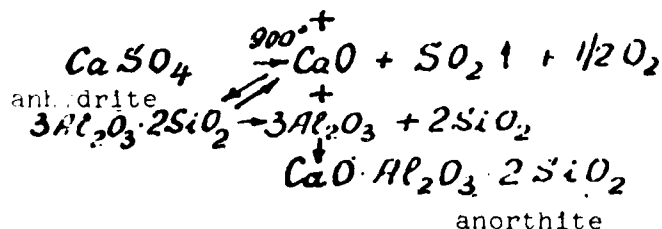 900° +
CaSO₄ → CaO + SO₂↑ + 1/2O₂
anhydrite +
3Al₂O₃·2SiO₂ → 3Al₂O₃ + 2SiO₂
CaO·Al₂O₃·2SiO₂
anorthite